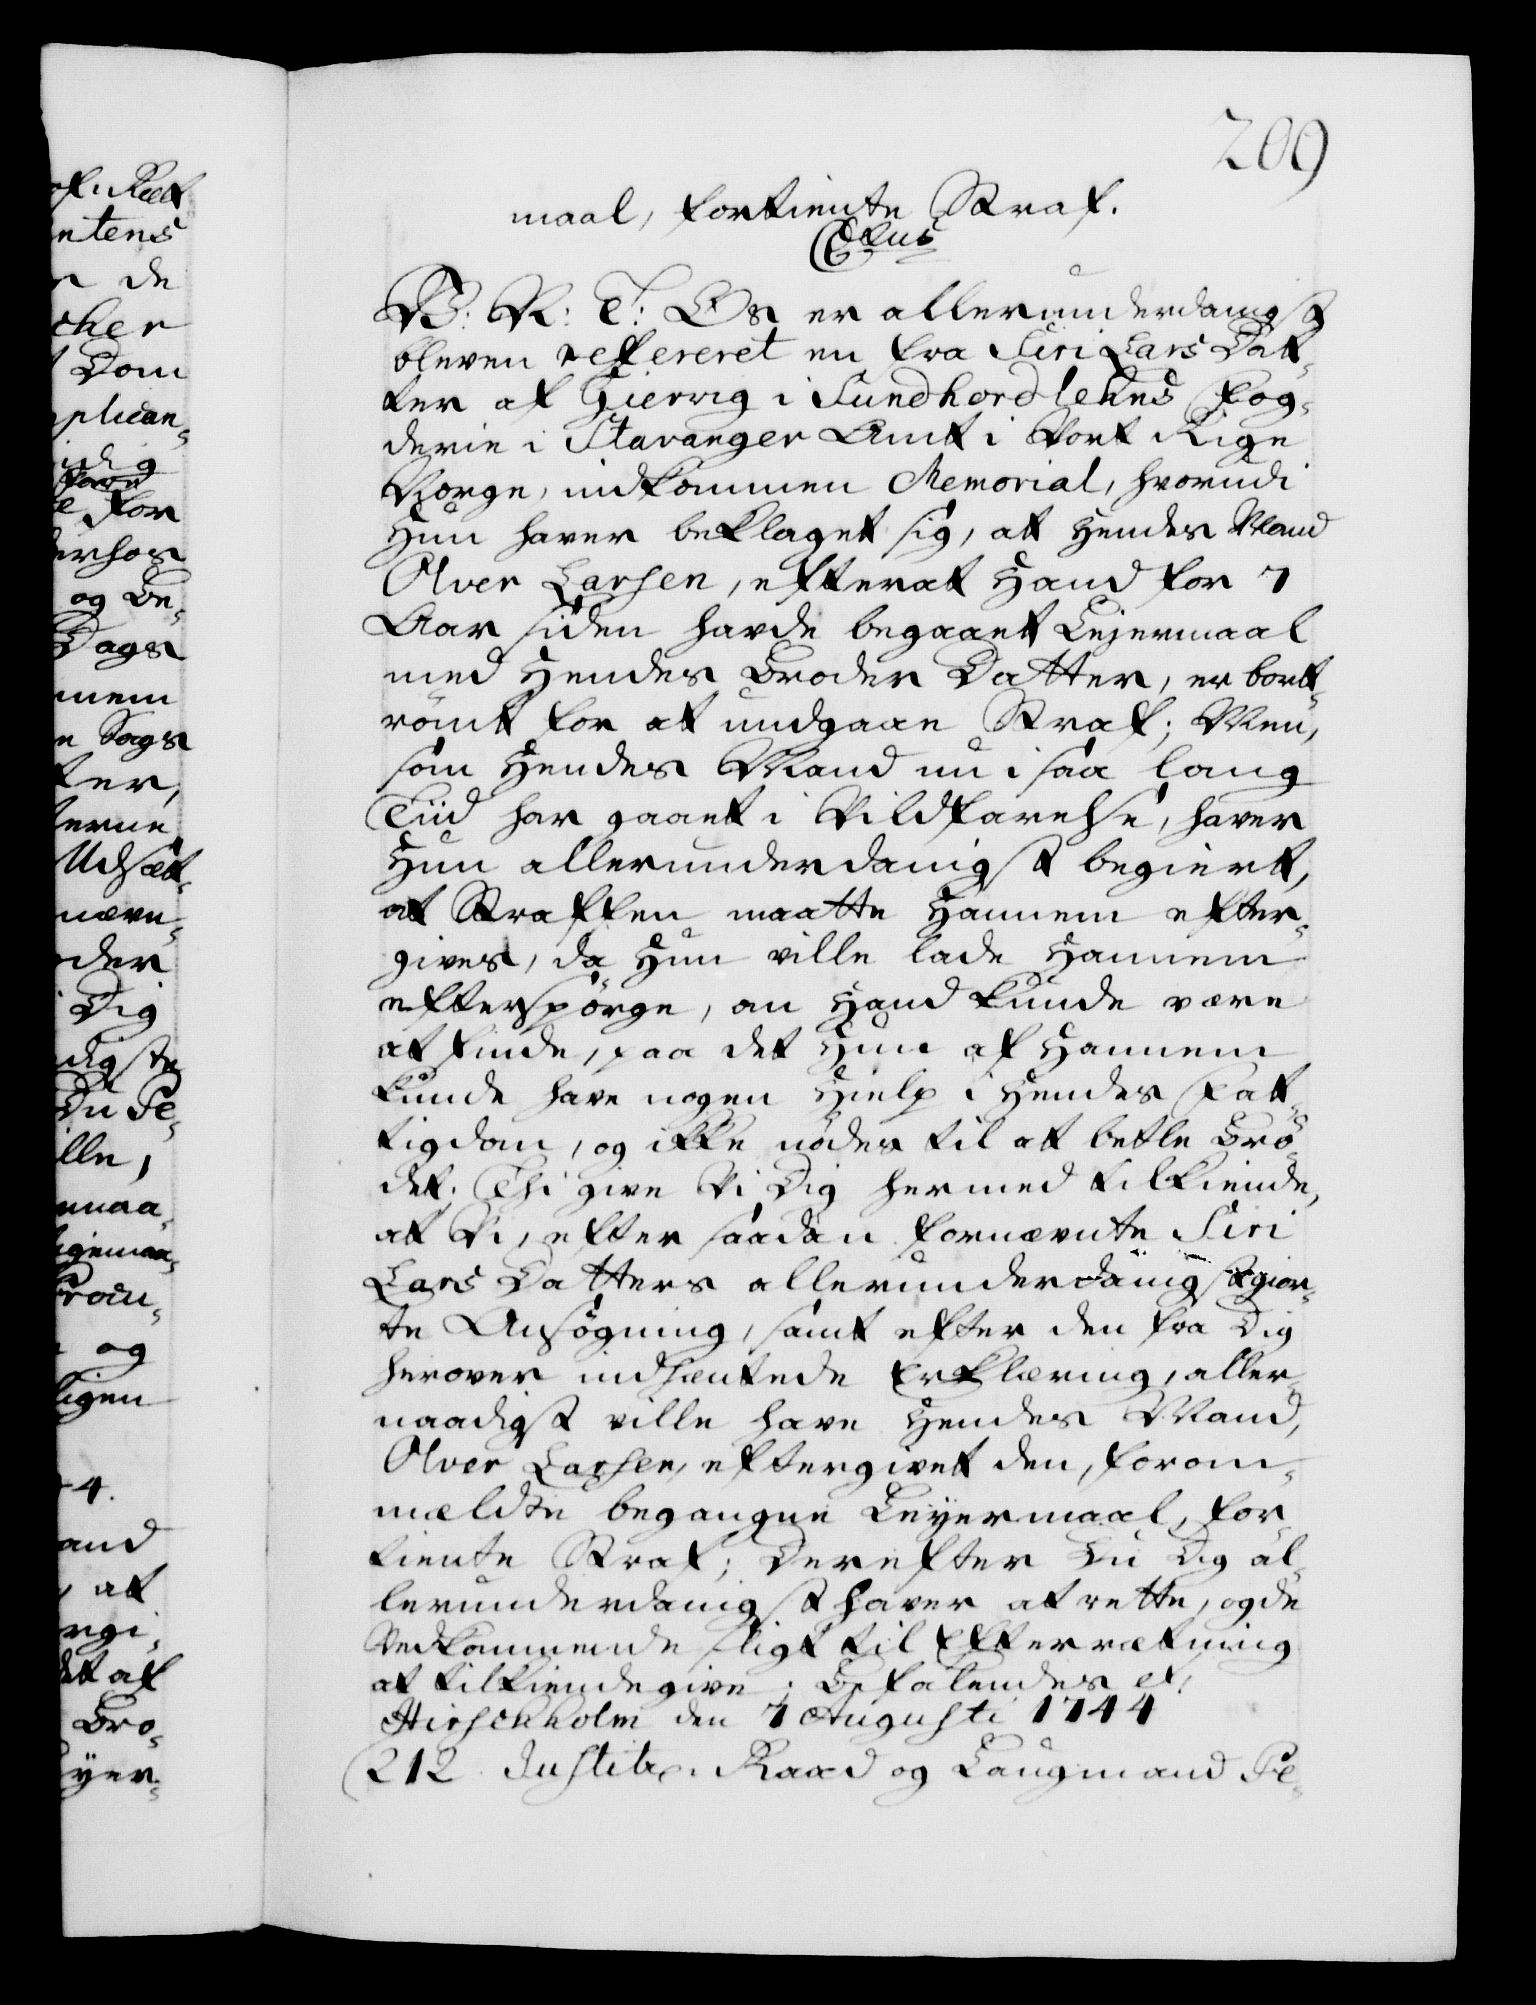 209
maal, fortiente Straf.
C6tus
V: V: T: Os er allerunderdanigst
bleven refereret en fra Siri Lars Dat-
ter af Gierrig i Sundhordlehns Fog-
derie i Stavanger Amt i Vort Rige
Norge, indkommen Memorial, hvorudi
Hun haver beklaget sig, at Hendes Mand
Olver Larsen, efterat Hand for 7
Aar siden havde begaaet Lejermaal
med Hendes Broder Datter, er bort-
römt for at undgaae Straf; Men,
som Hendes Mand nu i saa lang
Tiid har gaaet i Vildfarelse, haver
Hun allerunderdanigst begiert,
at Straffen maatte Hannem efter-
gives, da Hun ville lade Hannem
efterspörge, om Hand kunde være
at finde, paa det Hun af Hannem
kunde have nogen Hielp i Hendes Fat-
tigdom, og ikke nödes til at betle Brö-
det. Thi give Vi Dig hermed tilkiende,
at Vi, efter saadan fornævnte Siri
Lars Datters allerunderdanigst gior-
te Ansögning, samt efter den fra Dig
herover indhentede Erklæring, aller-
naadigst ville have Hendes Mand,
Olver Larsen, eftergivet den, forom-
mældte begangne Leyermaal, for-
tiente Straf; Derefter Du Dig al-
lerunderdanigst haver at rette, og de
Vedkommende sligt til Efterretning
at tilkiendegive. Befalendes etc
Hirschholm den 7 Augusti 1744
212. Justitz. Raad og Laugmand Pe-